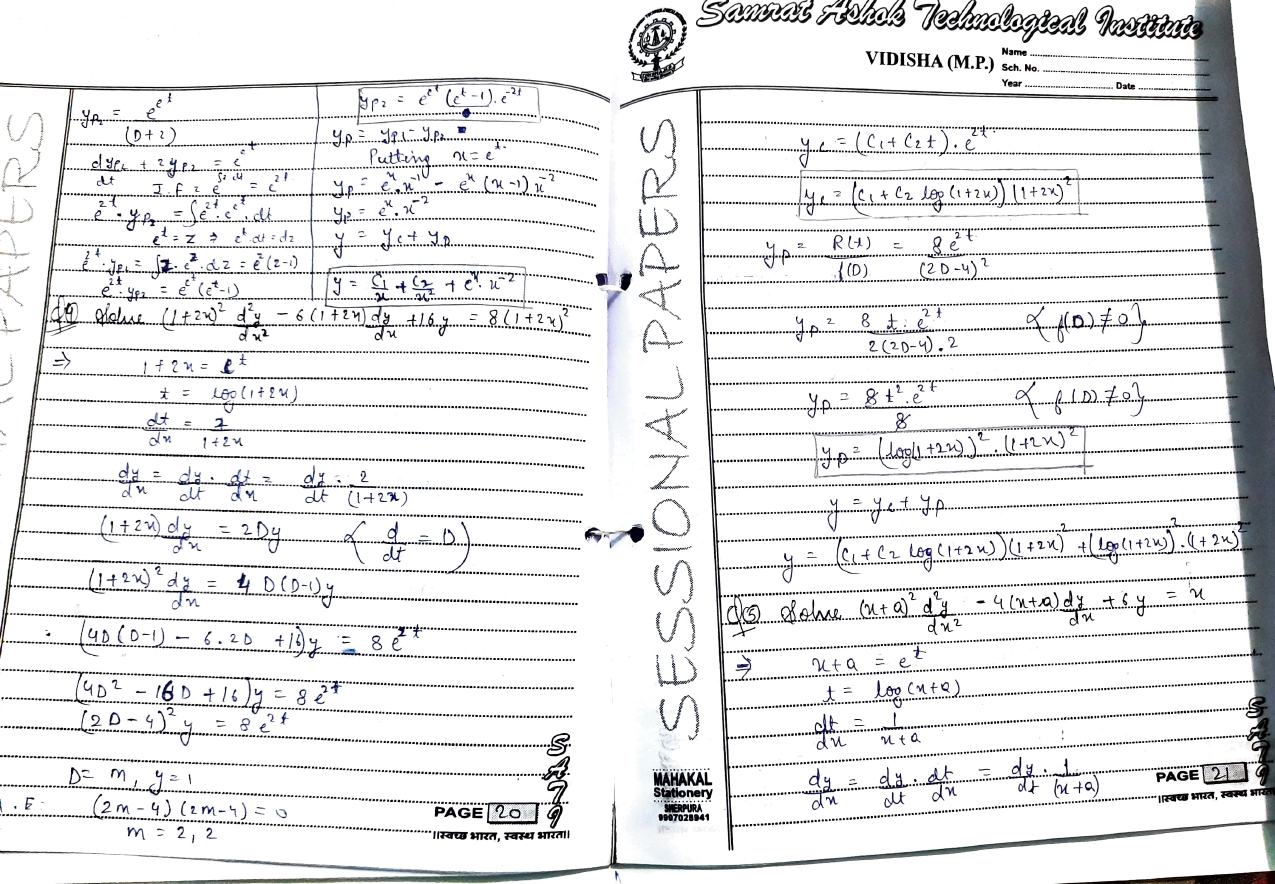 y_P₂ = e^(e^t) / (D+2)
dy_P₂/dt + 2y_P₂ = e^(e^t)
I.F = e^(∫2.dt) = e^(2t)
e^(2t) . y_P₂ = ∫e^(2t) . e^(e^t) . dt
e^t = z ⇒ e^t dt = dz
e^(2t) . y_P₂ = ∫z . e^z . dz = e^z (z-1)
e^(2t) . y_P₂ = e^(e^t) (e^t-1)
y_P₂ = e^(e^t) (e^t-1) . e^(-2t)
y_P = y_P₁ - y_P₂
Putting x = e^t.
y_P = e^x . x^(-1) - e^x (x-1) x^(-2)
y_P = e^x . x^(-2)
y = y_c + y_P
y = C₁/x + C₂/x² + e^x . x^(-2)
Q④ Solve (1+2x)² d²y/dx² - 6(1+2x) dy/dx + 16y = 8(1+2x)²
⇒ 1+2x = e^t
t = log(1+2x)
dt/dx = 2/(1+2x)
dy/dx = dy/dt . dt/dx = dy/dt . 2/(1+2x)
(1+2x) dy/dx = 2Dy { d/dt = D }
(1+2x)² dy/dx = 4 D(D-1)y
(4D(D-1) - 6.2D + 16)y = 8e^(2t)
(4D² - 16D + 16)y = 8e^(2t)
(2D-4)² y = 8e^(2t)
D = m, y = 1
A.E: (2m-4)(2m-4) = 0
m = 2, 2
PAGE 20
॥स्वच्छ भारत, स्वस्थ भारत॥
SATI
Samrat Ashok Technological Institute
VIDISHA (M.P.)
Name
Sch. No.
Year Date
SESSIONAL PAPERS
MAHAKAL
Stationery
SHERPURA
9907028941
y_c = (C₁ + C₂t) . e^(2t)
y_c = (C₁ + C₂ log(1+2x)) (1+2x)²
y_P = R(t)/f(D) = 8e^(2t)/(2D-4)²
y_P = 8 t . e^(2t) / 2(2D-4).2 { f(D) ≠ 0 }
y_P = 8 t² . e^(2t) / 8 { f(D) ≠ 0 }
y_P = (log(1+2x))² . (1+2x)²
y = y_c + y_P
y = (C₁ + C₂ log(1+2x))(1+2x)² + (log(1+2x))² . (1+2x)²
Q⑤ Solve (x+a)² d²y/dx² - 4(x+a) dy/dx + 6y = x
⇒ x+a = e^t
t = log(x+a)
dt/dx = 1/(x+a)
dy/dx = dy/dt . dt/dx = dy/dt . 1/(x+a)
PAGE 21
॥स्वच्छ भारत, स्वस्थ भारत॥
SATI